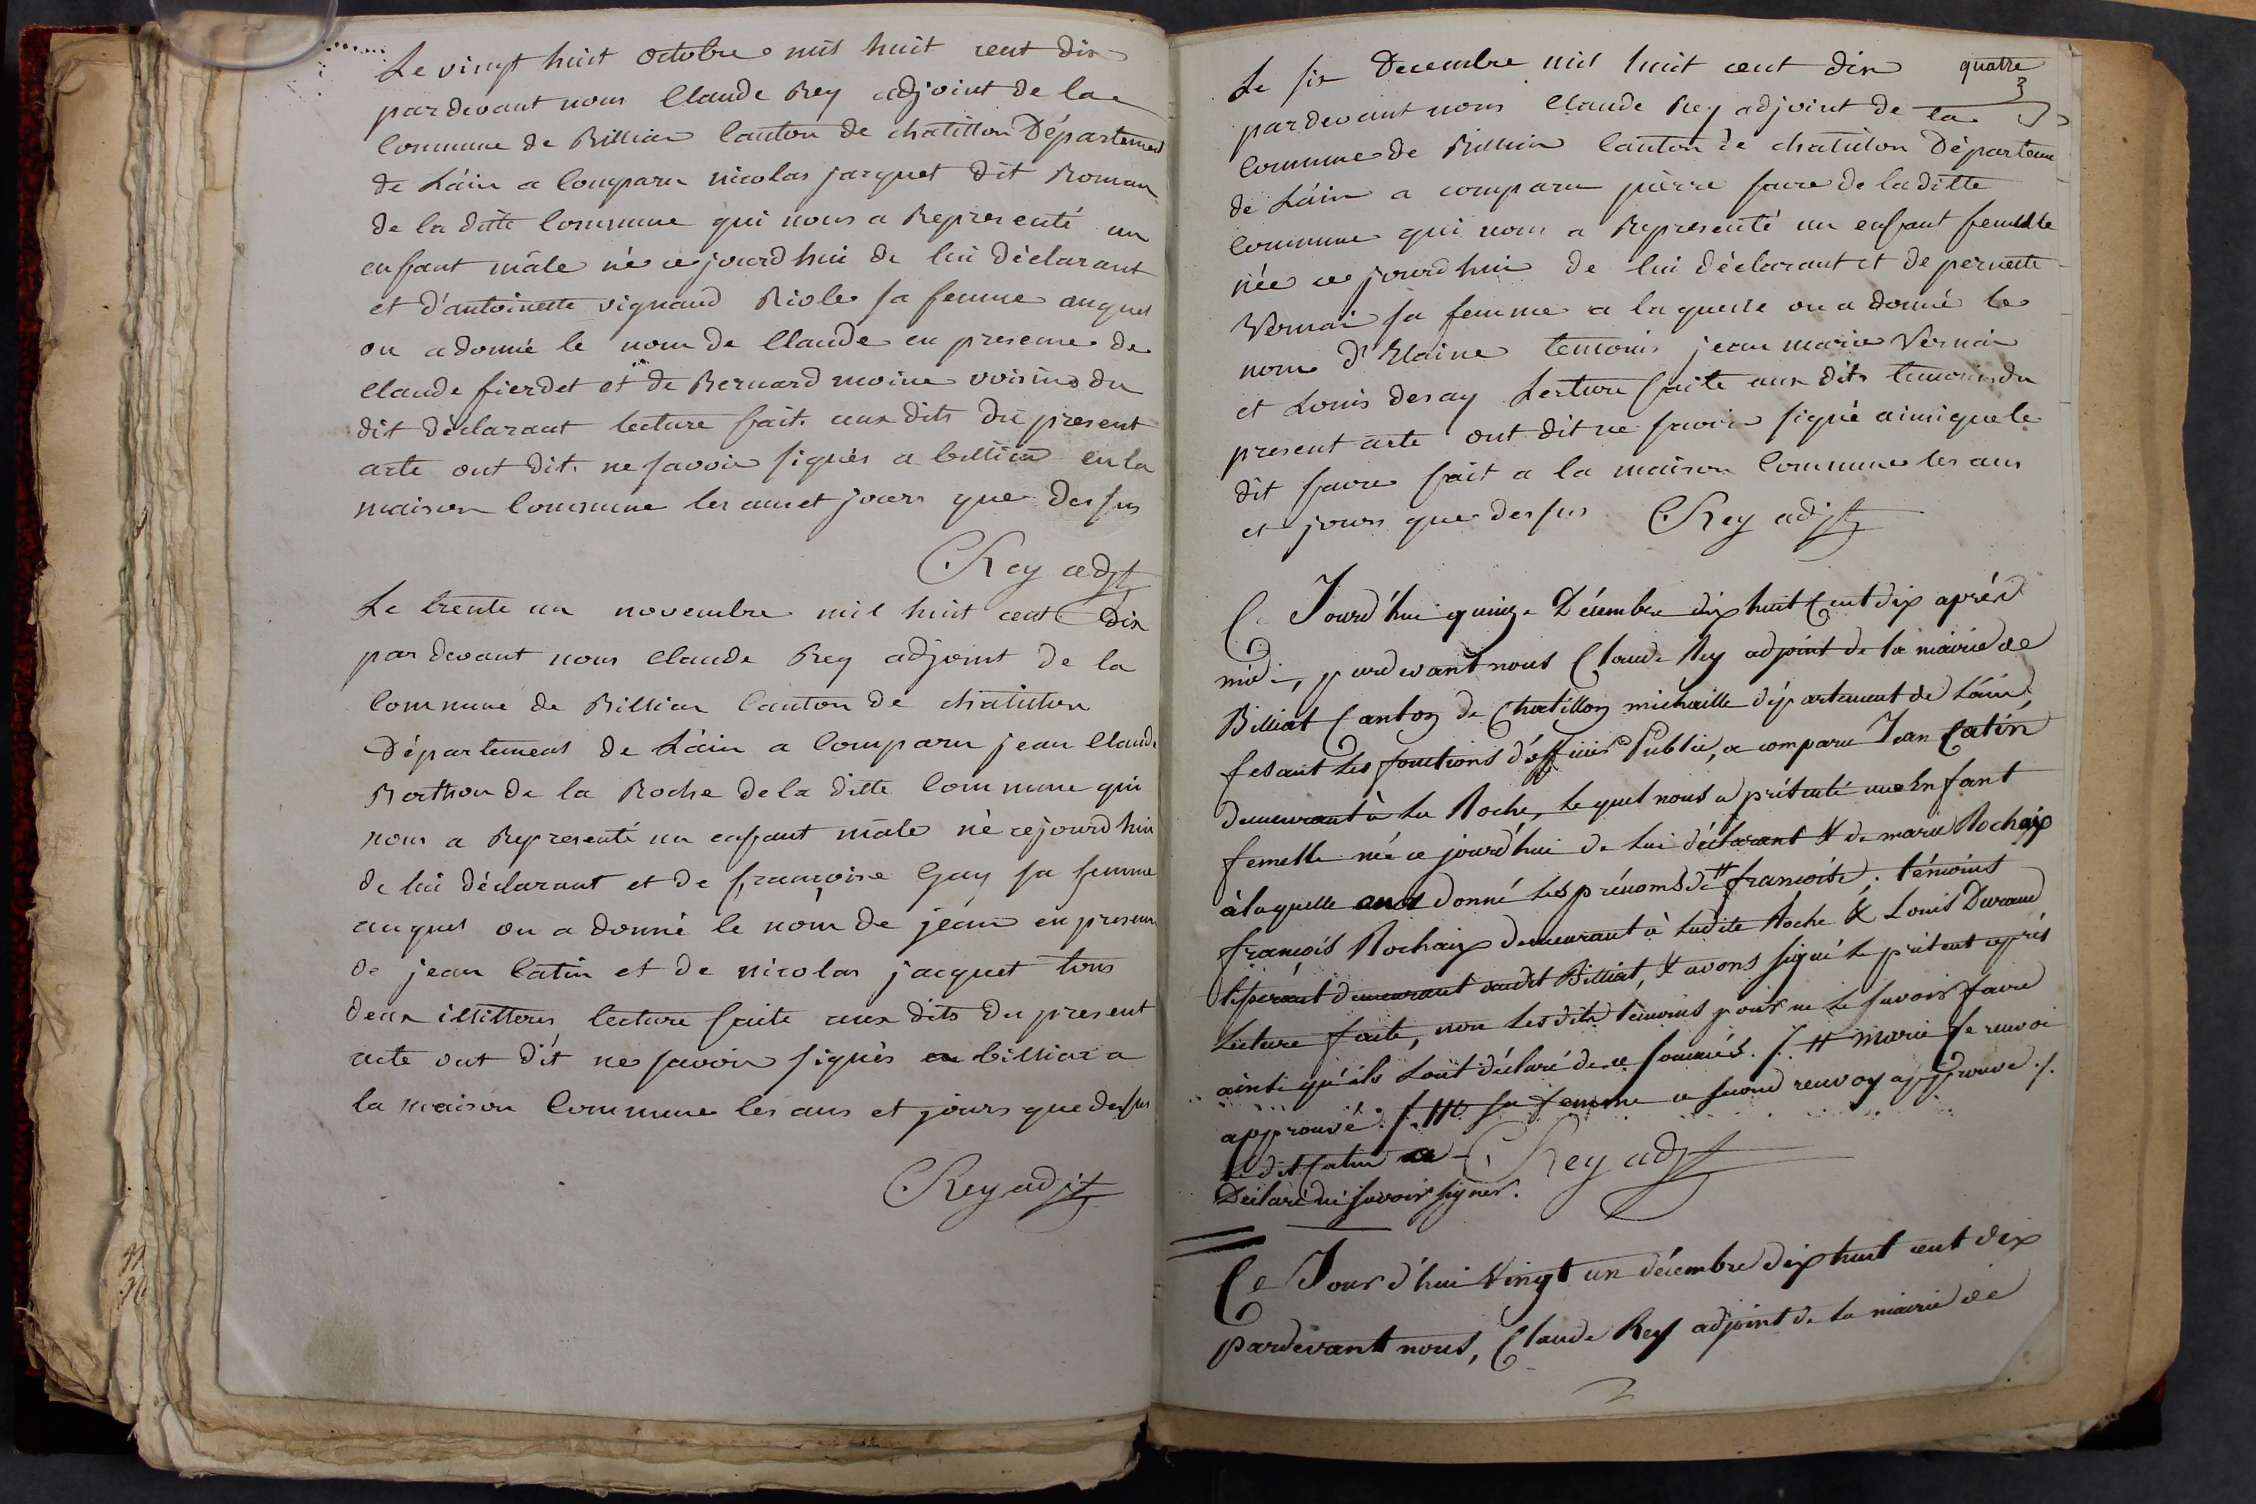 Le vingt huit octobre mil huit cent dix
pardevant nous Claude Rey adjoint de la
Commune de Billiar Canton de chatillon Département
de L'áin a Comparu nicolas jacquet dit Roman
de la ditte Commune qui nous a Representé un
enfant mâle né ce jourdhui de lui déclarant
et d'antoinette vignaud Riole sa femme auquel
on a donné le nom de Claude en presence de
claude fierdet et de Bernard moine voisins du
dit déclarant lecture fait aux dits du present
acte ont dit ne savoir signés a billiar en la
maison Commune les an et jours que dessus
CRey adjt
Le trente un novembre mil huit cent dix
par devant nous Claude Rey adjoint de la
Commune de Billiar Canton de chatillon
Département de L'áin a Comparu jean Claude
Berthon de la Roche de la ditte Commune qui
nous a Representé un enfant mâle né cejourdhui
de lui déclarant et de françoise Guy sa femme
auquel on a donné le nom de jean en presence
de jean Catin et de nicolas jacquet tous
deux illitterés lecture faite aux dits du present
acte ont dit ne savoir signés billiar a
la maison Commune les ans et jours que dessus
CRey adjt
quatre
3
Le six Decembre mil huit cent dix
pardevant nous Claude Rey adjoint de la
Commune de Billiar Canton de chatillon Départem
de L'áin a comparu pierre favre de la ditte
Commune qui nous a Representé un enfant femelle
née ce jourdhui de lui déclarant et de pernette
Vernai sa femme a laquelle on a donné le
nom d'Elaine temoins jean marie Vernai
et Louis desay Lecture faite aux dits temoins du
present acte ont dit ne savoir signé ainsi que le
dit favre fait a la maison Commune les ans
et jours que dessus CRey adjt
Ce Jourd'hui quinze Décembre dix huit Cent dix aprés
midi, pardevant nous Claude Rey adjoint de la mairie de
Billiat Canton de Chatillon michaille département de L'áin,
fesant les fonctions d'officier Public, a comparu Jean Catin
demeurant à La Roche, lequel nous a présenté un Enfant
femelle né ce jourd'hui de lui déclarant & de marie Rochaix
à laquelle donné les prénoms de # françoise. témoins
françois Rochaix demeurant à Ladite Roche & Louis Durand
demeurant audit Billiat, & avons signé le présent après
Lecture faite, non Lesdits témoins pour ne le savoir faire
ainsi qu'ils L'ont déclaré de ce sommés. /. # marie Le renvoi
approuvé. /. ## sa femme ce second renvoy approuvé ./.
Le dit Catin a CRey adjt
Déclaré né savoir signer.
Ce Jourd'hui Vingt un décembre dix huit cent dix
pardevant nous, Claude Rey adjoint de la mairie de